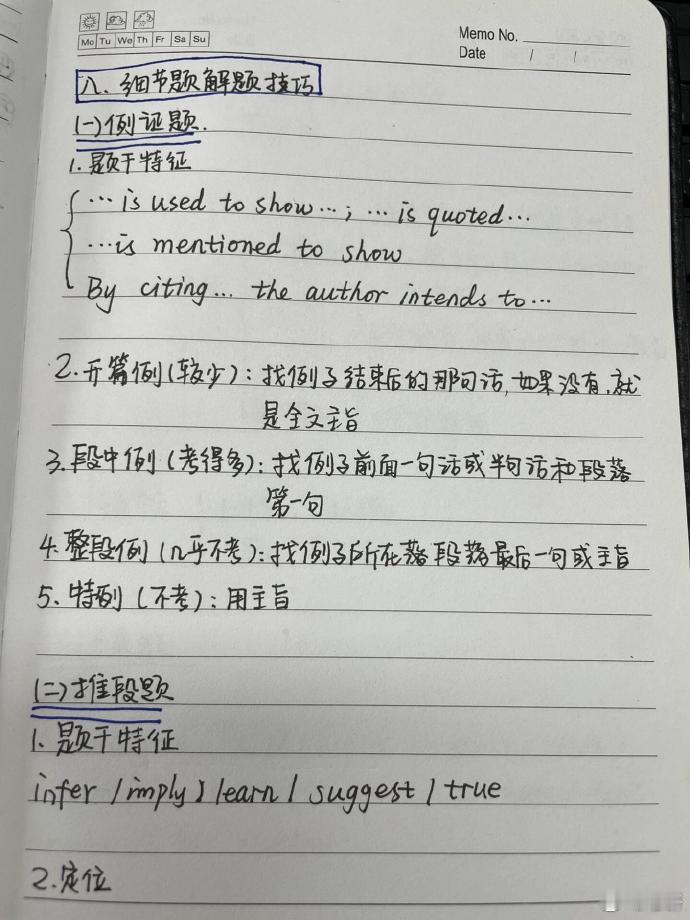 Mo Tu We Th Fr Sa Su
Memo No.
Date / /
八、细节题解题技巧
(一)例证题.
1.题干特征
…is used to show…; …is quoted…
…is mentioned to show
By citing… the author intends to…
2.开篇例(较少):找例子结束后的那句话,如果没有,就
是全文主旨
3.段中例(考得多):找例子前面一句话或半句话和段落
第一句
4.整段例(几乎不考):找例子所在落段落最后一句或主旨
5、特例(不考):用主旨
(二)推段题
1、题干特征
infer / imply / learn / suggest / true
2.定位